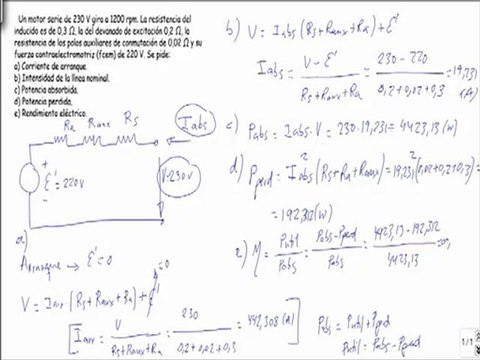 Un motor serie de 230 V gira a 1200 rpm. La resistencia del
inducido es de 0,3 Ω, la del devanado de excitación 0,2 Ω, la
resistencia de los polos auxiliares de conmutación de 0,02 Ω y su
fuerza contraelectromotriz (fcem) de 220 V. Se pide:
a) Corriente de arranque.
b) Intensidad de la línea nominal.
c) Potencia absorbida,
d) Potencia perdida,
e) Rendimiento eléctrico.
Ra Raux Rs Iabs
+
E' = 220V
V=230V
a)
Arranque → E'=0
=0
V = Iarr (Rs + Raux + Ra) + E'
[Iarr = V / (Rs + Raux + Ra) = 230 / (0,2 + 0,02 + 0,3) = 442,308 (A)]
b) V = Iabs (Rs + Raux + Ra) + E'
Iabs = (V - E') / (Rs + Raux + Ra) = (230 - 220) / (0,2 + 0,02 + 0,3) = 19,231 (A)
c) Pabs = Iabs · V = 230 · 19,231 = 4423,13 (W)
d) Pperd = Iabs² (Rs + Ra + Raux) = 19,231² (0,02 + 0,2 + 0,3) =
= 192,312 (W)
e) η = Putil / Pabs = (Pabs - Pperd) / Pabs = (4423,13 - 192,312) / 4423,13 =
Pabs = Putil + Pperd
Putil = Pabs - Pperd
1/1